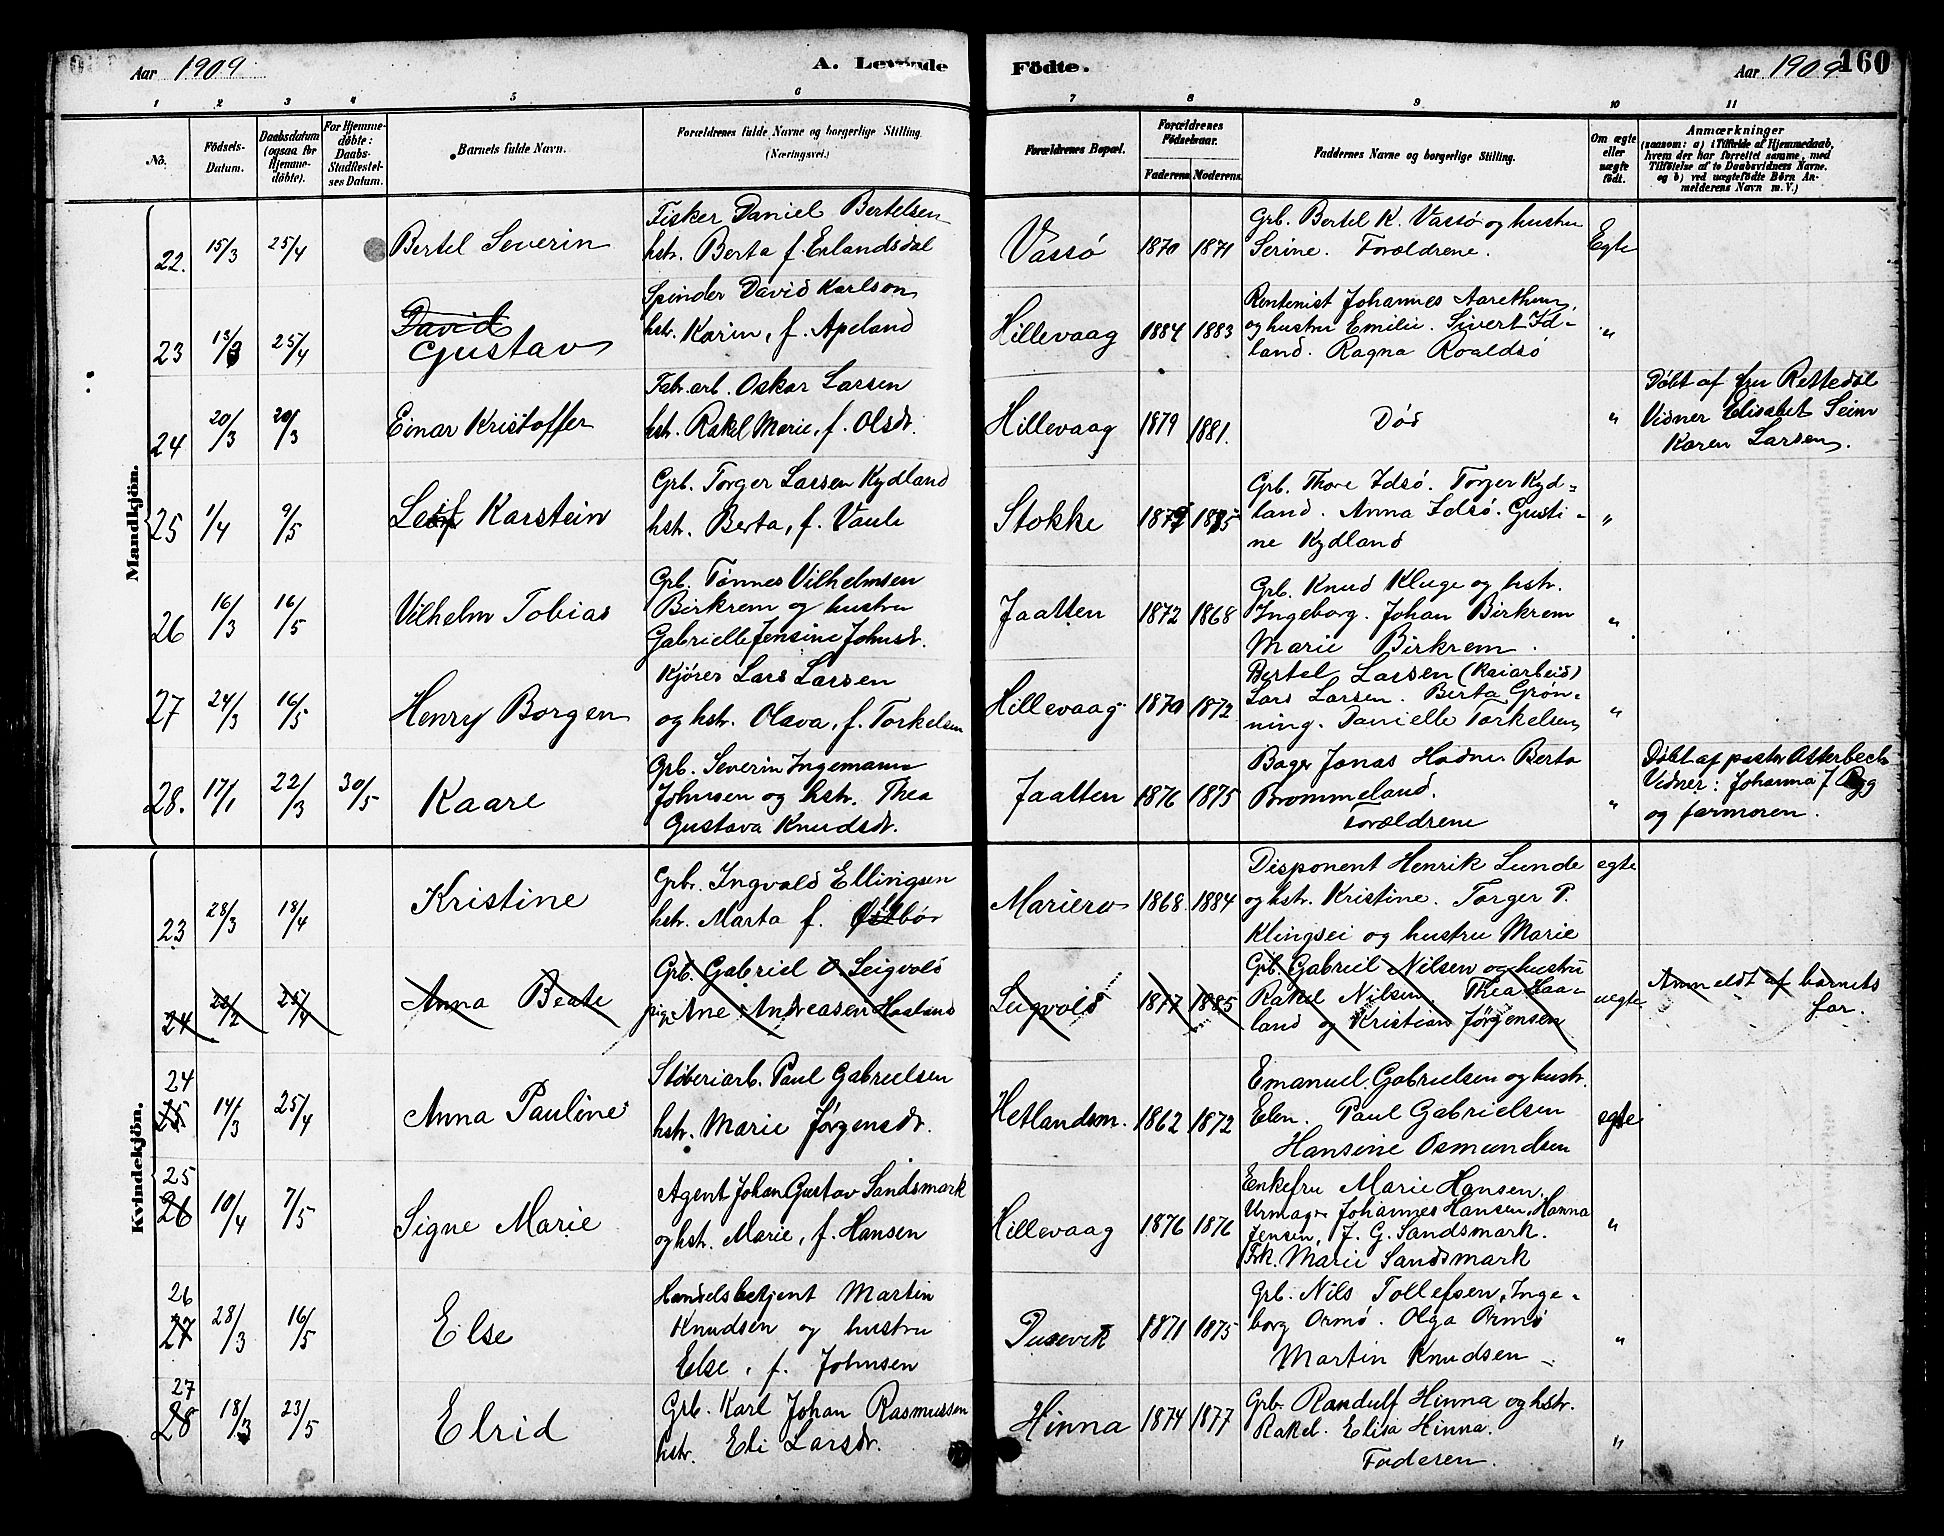 Aar 1909
A. Levende Födte.
Aar 1909
160
1 2 3 4 5 6 7 8 9 10 11
No.
Födsels-Datum.
Daabsdatum (ogsaa for Hjemme-döbte).
For Hjemme-döbte: Daabs-Stadfæstel-ses Datum.
Barnets fulde Navn.
Forældrenes fulde Navne og borgerlige Stilling.
(Næringsvei.)
Forældrenes Bopæl.
Forældrenes Födselsaar.
Faderens Moderens
Faddernes Navne og borgerlige Stilling.
Om ægte eller uægte födt.
Anmærkninger
(saasom: a) i Tilfælde af Hjemmedaab,
hvem der har forrettet samme, med
Tilföielse af to Daabsvidners Navne.
og b) ved uægtefödte Börn An-
melderens Navn m. V.)
Mandkjön.
22. 15/3 25/4 Bertel Severin
Fisker Daniel Bertelsen
hstr. Berta f. Erlandsdal
Vassø 1870 1871
Grb. Bertel K. Vassø og hustru
Serine. Forældrene.
Egte
23 13/3 25/4 David
Gustav
Spinder David Karlson
hstr. Karin, f. Apeland
Hillevaag 1884 1883
Rentenist Johannes Aarethun
og hustru Emilie. Sivert Id-
land. Ragna Roaldsø
"
24 20/3 20/3 Einar Kristoffer
Fabr.arb. Oskar Larsen
hstr. Rakel Marie, f. Olsdr.
Hillevaag 1879 1881.
Död
"
Döbt af fru Rettedal
Vidner Elisabet Seim
Karen Larsen.
25 1/4 9/5 Leif Karstein
Grb. Torger Larsen Kydland
hstr. Berta, f. Vaule
Stokke 1879 1885
Grb. Thore Idsø. Torger Kyd-
land. Anna Idsø. Gusti-
ne Kydland
"
26 16/3 16/5 Vilhelm Tobias
Grb. Tönnes Vilhelmsen
Birkrem og hustru
Gabrielle Jensine Johnsdr.
Jaatten 1872 1868
Grb. Knud Kluge og hstr.
Ingeborg. Johan Birkrem
Marie Birkrem.
"
27 24/3 16/5 Henry Borgen
Kjörer Lars Larsen
og hstr. Olava, f. Torkelsen
Hillevaag 1870 1872
Bertel Larsen (Kaiarbeid)
Lars Larsen. Berta Grön-
ning. Danielle Torkelsen
"
28. 17/1 22/3 30/5 Kaare
Grb. Severin Ingemann
Johnsen og hstr. Thea
Gustava Knudsdr.
Jaatten 1876 1875
Bager Jonas Hodne Berta
Brommeland.
Forældrene
"
Döbt af pastor
Vidner: Johanna J. Rygg
og farmoren.
Kvindekjön.
23 28/3 18/4 Kristine
Grbr. Ingvald Ellingsen
hstr. Marta f. Østbø
Mariero 1868 1884
Disponent Henrik Lunde
og hstr. Kristine. Torger P.
Klingsei og hustru Marie
egte
24 22/2 25/4 Anna Beate
Grb. Gabriel O Seigvold
pige Ane Andreasen Haaland
Lugvold 1877 1885
Grb. Gabriel Nilsen og hustru
Rakel Nilsen. Thea Haa-
land og Kristian Jørgensen
uegte
Anmeldt af barnets
far.
24
25 14/3 25/4 Anna Pauline
Stöberiarb. Paul Gabrielsen
hstr. Marie Jørgensdr.
Hetlandsm. 1862 1872
Emanuel Gabrielsen og hustr.
Elen. Paul Gabrielsen
Hansine Osmundsen
egte
25
26 10/4 7/5 Signe Marie
Agent Johan Gustav Sandsmark
og hst. Marie, f. Hansen
Hillevaag 1876 1876
Enkefru Marie Hansen,
Urmager Johannes Hansen, Hanna
Jensen, J. G. Sandsmark.
Frk. Marie Sandsmark
"
26
27 28/3 16/5 Else
Handelsbetjent Martin
Knudsen og hustru
Else, f. Johnsen
Dusevik 1871 1875
Grb. Nils Tollefsen, Inge-
borg Ormø. Olga Ormø
Martin Knudsen
"
27
28 18/3 23/5 Elrid
Grb. Karl Johan Rasmussen
hstr. Eli Larsdr.
Hinna 1874 1877
Grb. Randulf Hinna og hstr.
Rakel. Elisa Hinna.
Faderen.
"